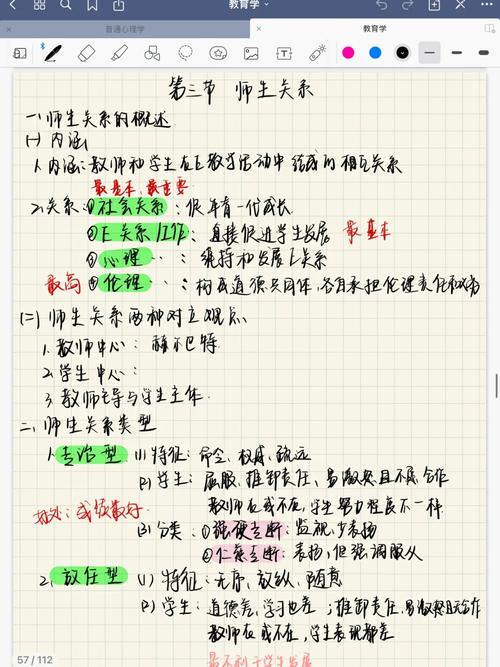 教育学
普通心理学
教育学
第三节 师生关系
一、师生关系的概述
(一)内涵
1.内涵:教师和学生在E教学活动中结成的相互关系
最基本、最重要
2.关系:①社会关系:促年青一代成长
②E关系/工作:直接促进学生发展 最基本
③心理··:维持和发展E关系
最高 ④伦理··:构 道德共同体,各自承担伦理责任和
(二)师生关系两种对立观点
1.教师中心:赫尔巴特
2.学生中心:
3.教师主导与学生主体
二、师生关系类型
1.专治型 (1)特征:命令、权威、疏远
(2)学生:屈服、推卸责任、易激怒且不愿合作
教师在或不在,学生努力程度不一样
好处:成绩最好
(3)分类:①强硬专断:监视,少表扬
②仁慈专断:表扬,但强调服从
2.放任型 (1)特征:无序、放纵、随意
(2)学生:道德差,学习也差;推卸责任、易激怒且不合作
教师在或不在,学生表现都差
最不利于学生发展
57 / 112